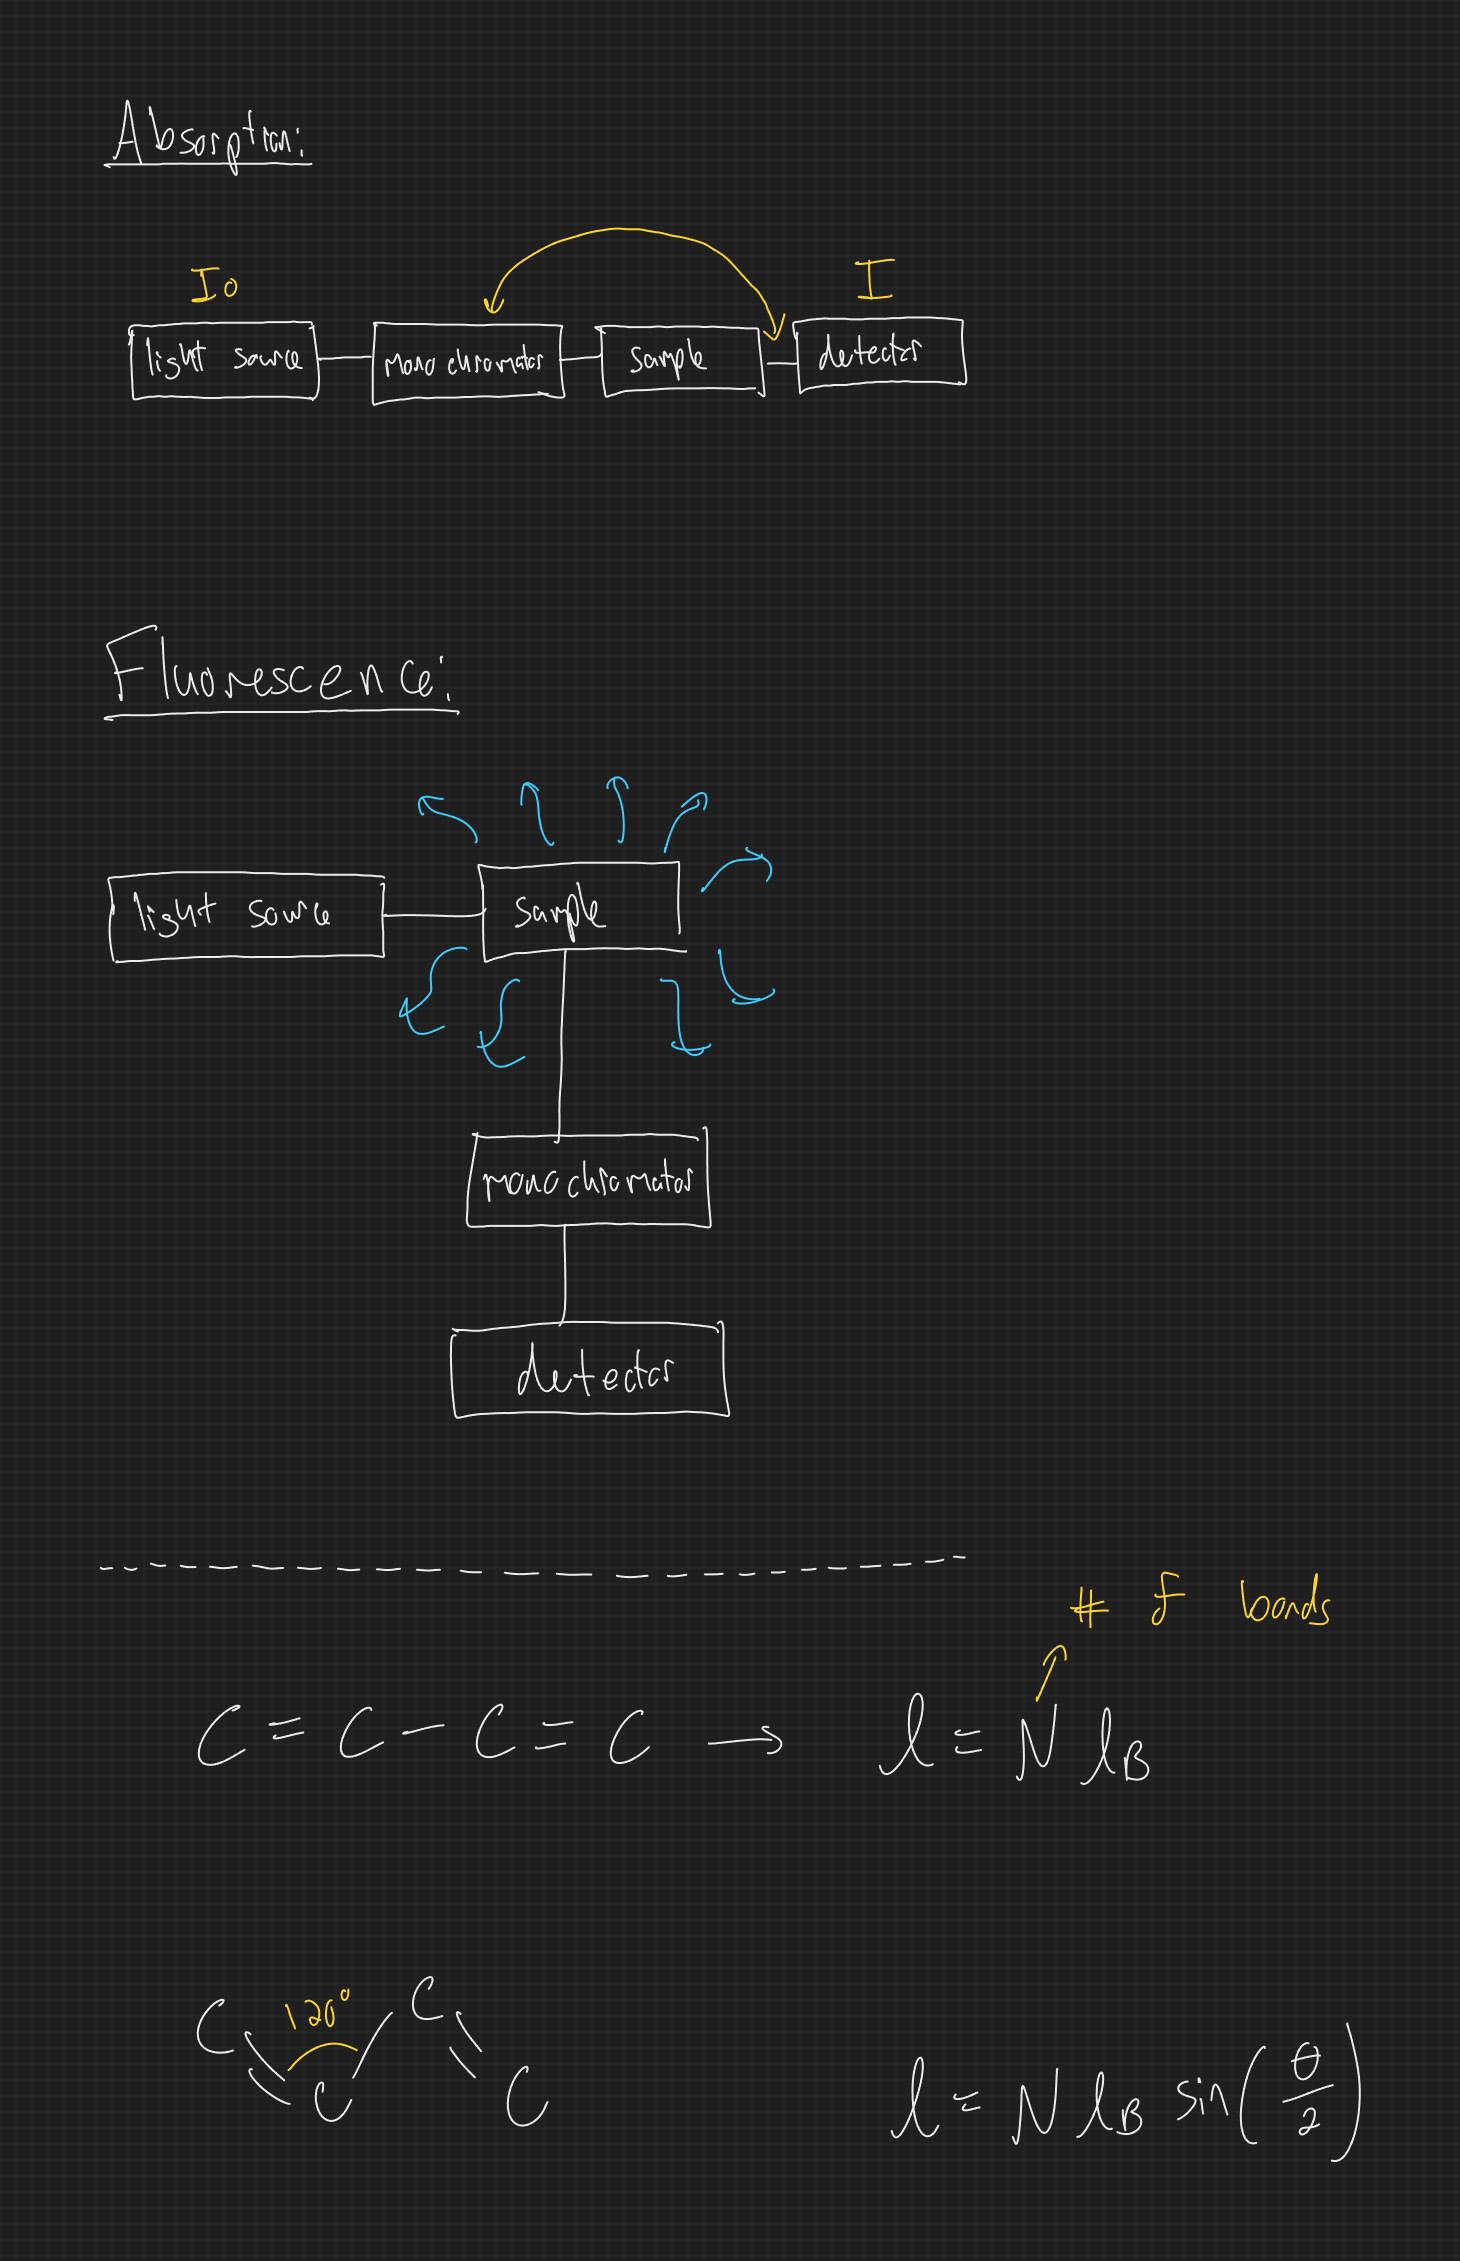 Absorption:
I0 I
light source monochromator sample detector
Fluorescence:
light source sample
monochromator
detector
# of bonds
C = C - C = C → l = N lB
120°
C C
C C
l = N lB sin(θ/2)